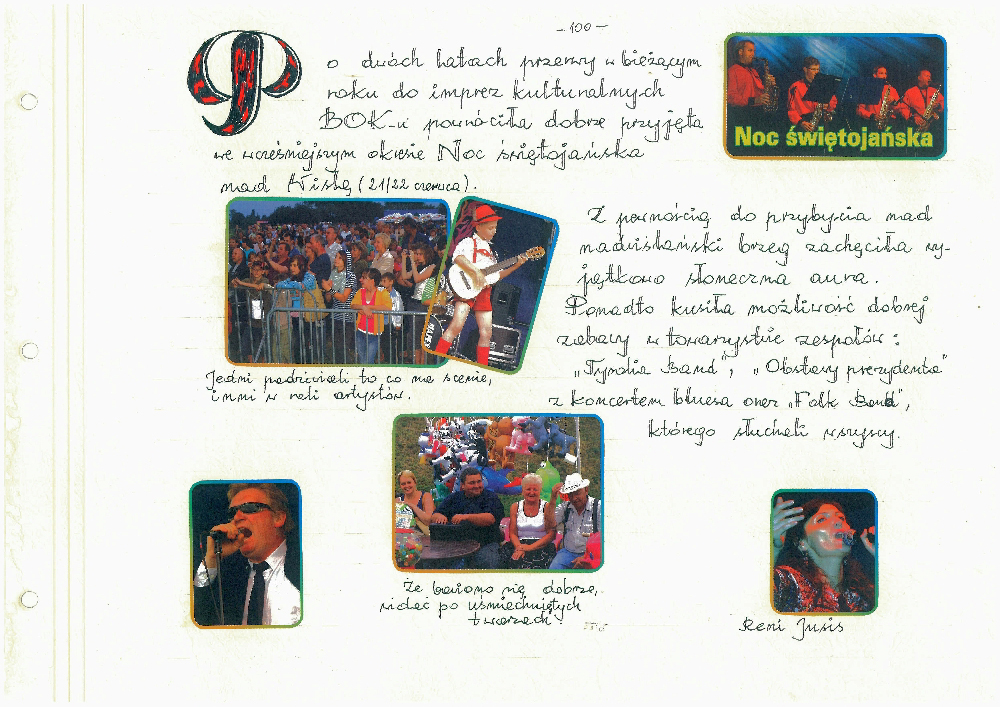 - 100 -
Po dwóch latach przerwy w bieżącym
roku do imprez kulturalnych
BOK-u powróciła dobrze przyjęta
we wcześniejszym okresie Noc świętojańska
nad Wisłą (21/22 czerwca).
Noc świętojańska
Z pewnością do przybycia nad
nadwiślański brzeg zachęciła wy-
jątkowo słoneczna aura.
Ponadto kusiła możliwość dobrej
zabawy w towarzystwie zespołów:
„Tymolia Band", „Obstawy prezydenta"
z koncertem bluesa oraz „Folk Band",
którego słuchali wszyscy.
Jedni podziwiali to co na scenie,
inni w roli artystów.
Że bawiono się dobrze,
widać po uśmiechniętych
twarzach.
Reni Jusis